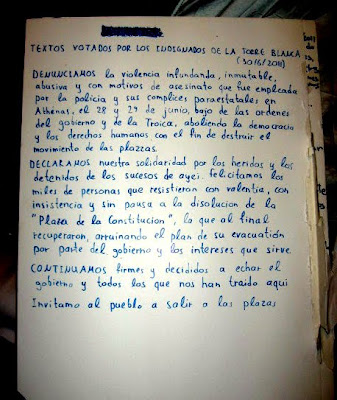 TEXTOS VOTADOS POR LOS INDIGNADOS DE LA TORRE BLANCA
(30/6/2011)
DENUNCIAMOS la violencia infundanda, inmutable,
abusiva y con motivos de asesinato que fue emplicada
por la policía y sus complices paraestatales en
Athenas, el 28 y 29 de junio, bajo de las ordenes
del gobierno y de la Troica, aboliendo la democracia
y los derechos humanos con el fin de destruir el
movimiento de las plazzas.
DECLARAMOS nuestra solidaridad por los heridos y los
detenidos de los sucesos de ayei. Felicitamos los
miles de personas que resistieron con valentia, con
insistencia y sin pausa a la disolucion de la
"Plaza de la Constitucion", la que al final
recuperaron, arruinando el plan de su evacuatión
por parte del gobierno y los intereses que sirve.
CONTINUAMOS firmes y decididos a echar el
gobierno y todos los que nos han traido aqui
Invitamo al pueblo a salir a las plazas